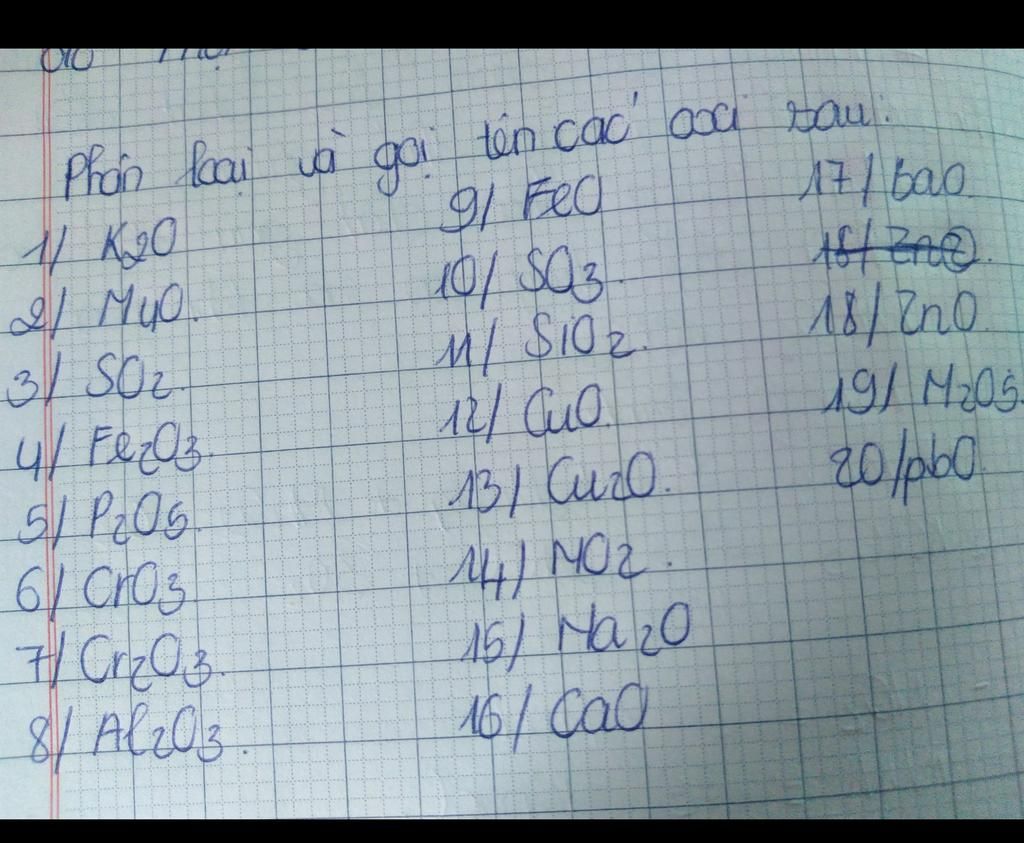 Phân loại và gọi tên các oxi sau:
1/ K2O
2/ MgO.
3/ SO2.
4/ Fe2O3.
5/ P2O5.
6/ CrO3
7/ Cr2O3.
8/ Al2O3.
9/ FeO
10/ SO3.
11/ SiO2.
12/ CuO.
13/ Cu2O.
14/ NO2.
15/ Na2O
16/ CaO
17/ BaO
18/ ZnO.
19/ N2O5.
20/ pbO.